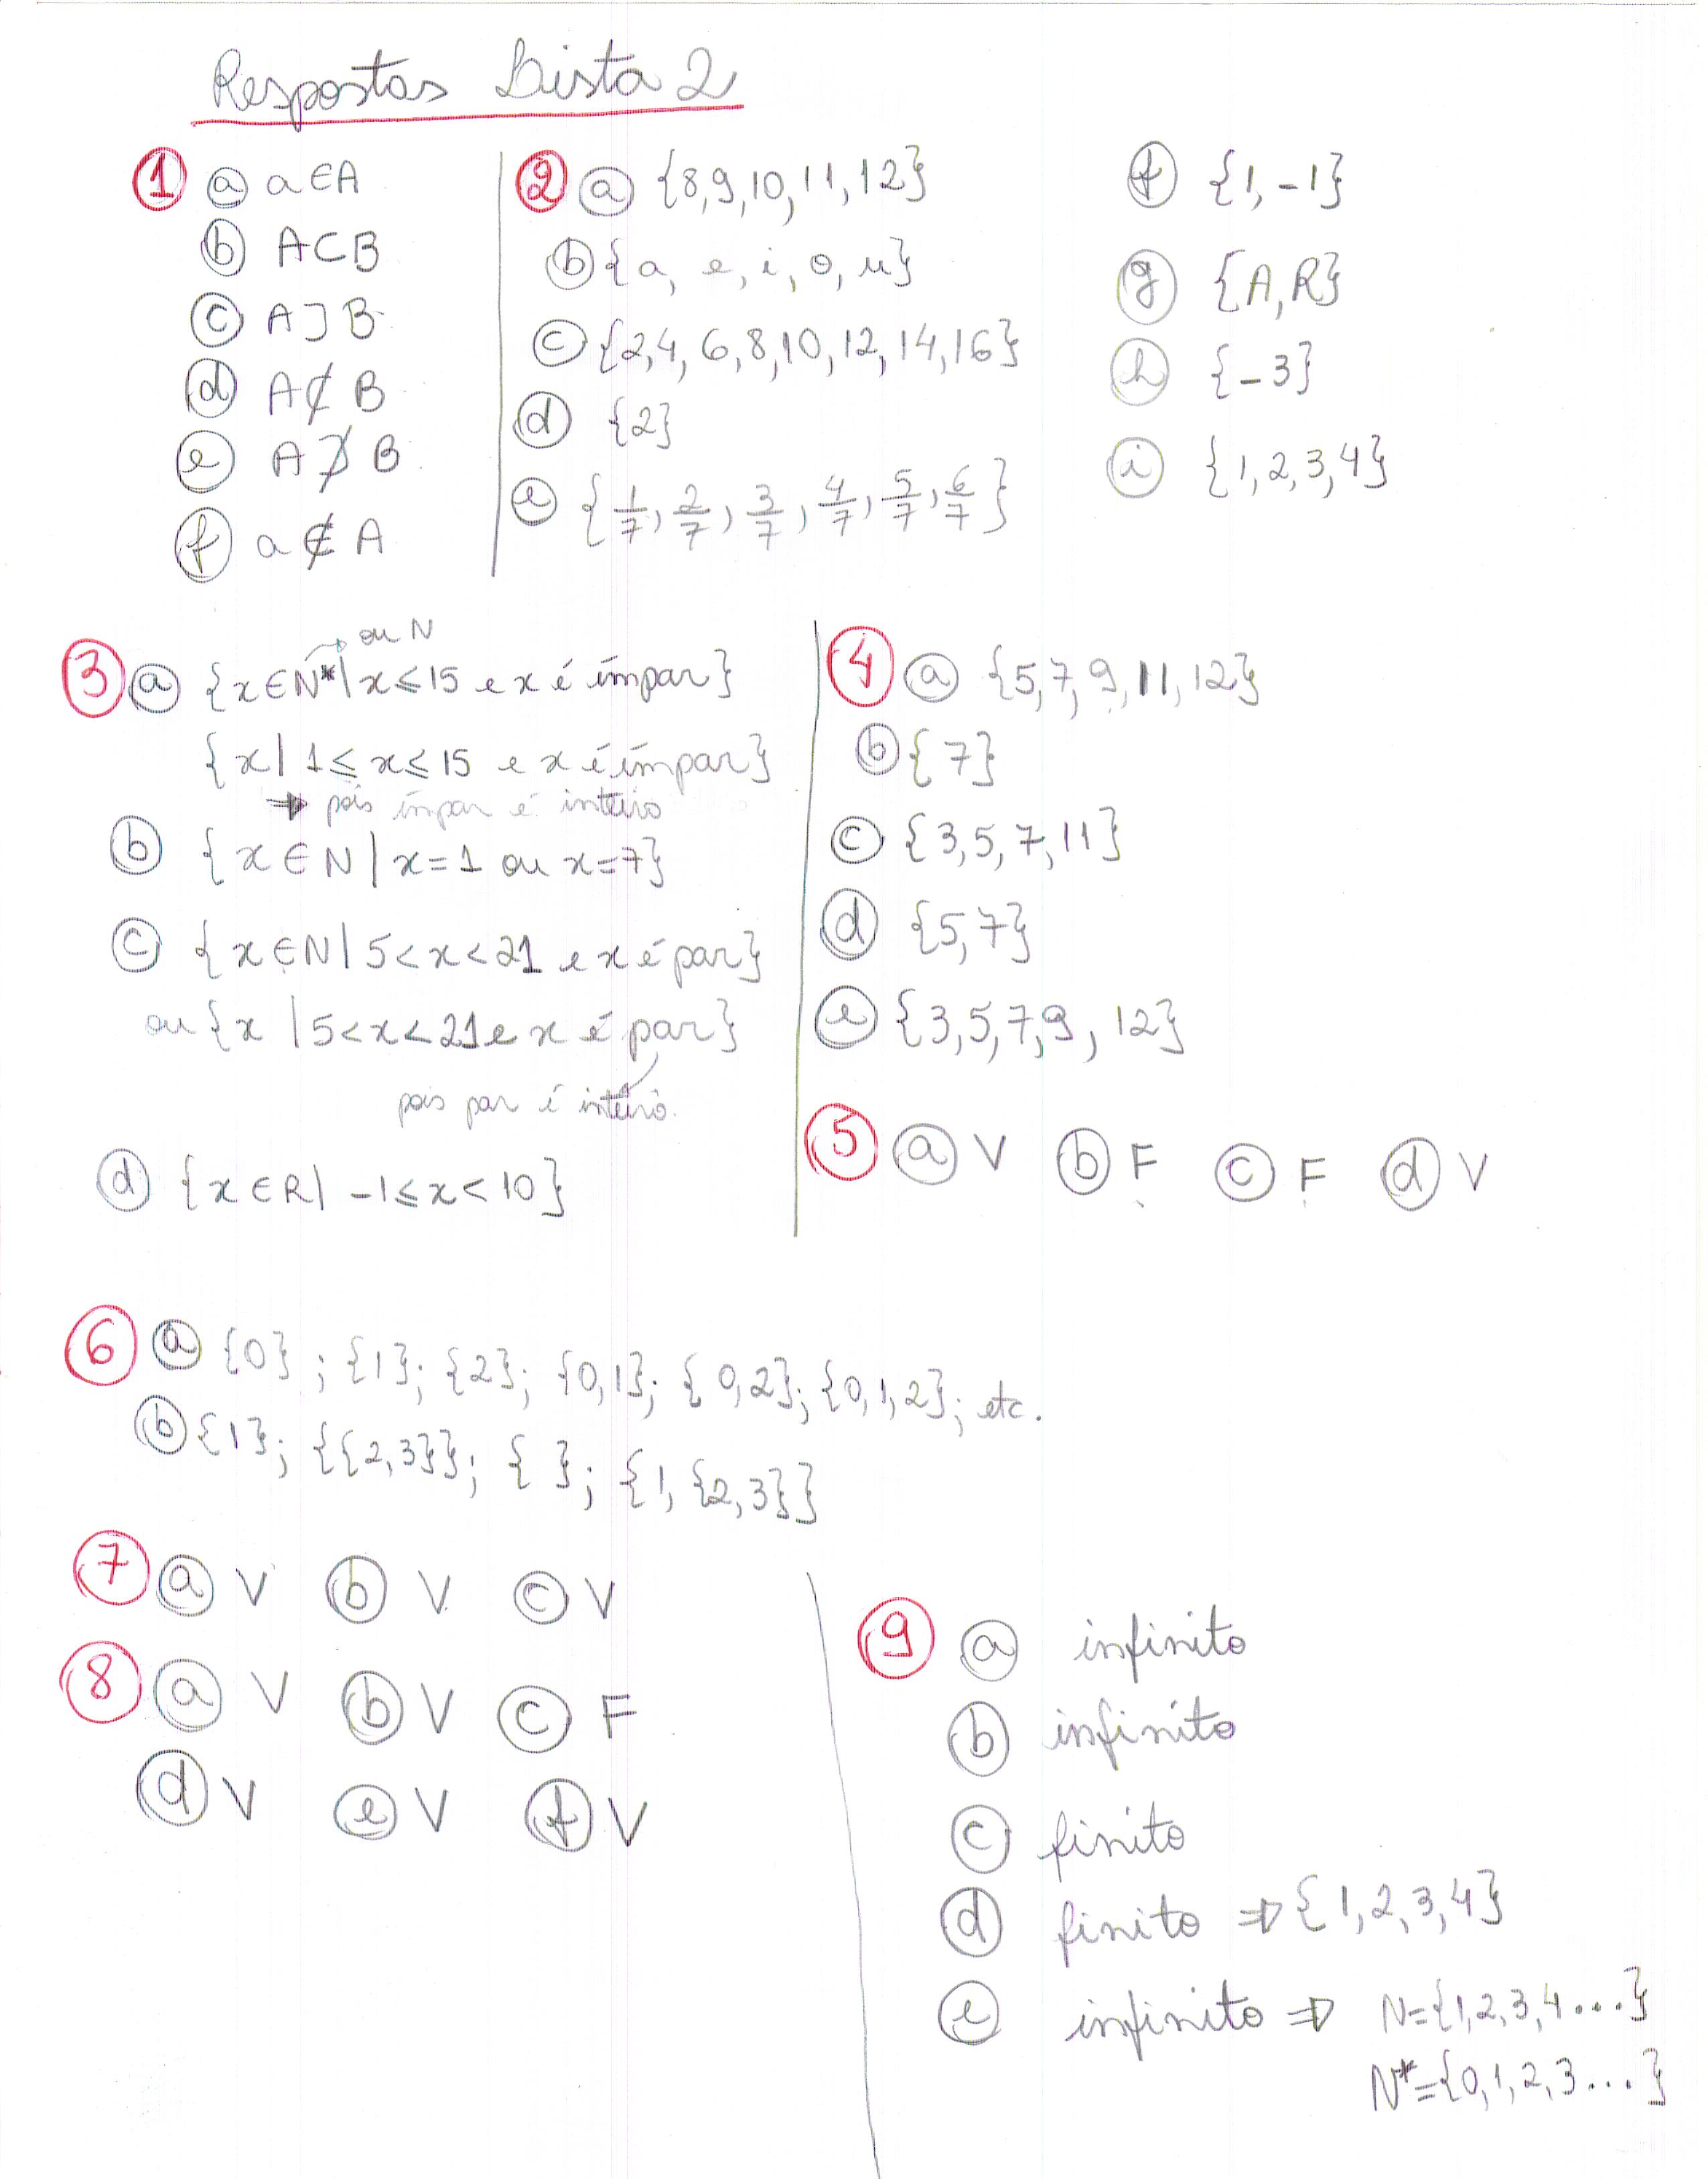 Respostas Lista 2
1 a a∈A
b A⊂B
c A⊃B
d A⊄B
e A⊅B
f a∉A
2 a {8,9,10,11,12}
b {a, e, i, o, u}
c {2,4,6,8,10,12,14,16}
d {2}
e {1/7, 2/7, 3/7, 4/7, 5/7, 6/7}
f {1,-1}
g {A,R}
h {-3}
i {1,2,3,4}
ou N
3 a {x∈N*| x≤15 e x é ímpar}
{x| 1≤x≤15 e x é ímpar}
⇒ pois ímpar é inteiro
b {x∈N| x=1 ou x=7}
c {x∈N| 5<x<21 e x é par}
ou {x |5<x<21 e x é par}
pois par é inteiro.
d {x∈R| -1≤x<10}
4 a {5,7,9,11,12}
b {7}
c {3,5,7,11}
d {5,7}
e {3,5,7,9, 12}
5 a V b F c F d V
6 a {0}; {1}; {2}; {0,1}; {0,2}; {0,1,2}; etc.
b {1}; {{2,3}}; { }; {1, {2,3}}
7 a V b V c V
8 a V b V c F
d V e V f V
9 a infinito
b infinito
c finito
d finito ⇒ {1,2,3,4}
e infinito ⇒ N={1,2,3,4....}
N*={0,1,2,3...}